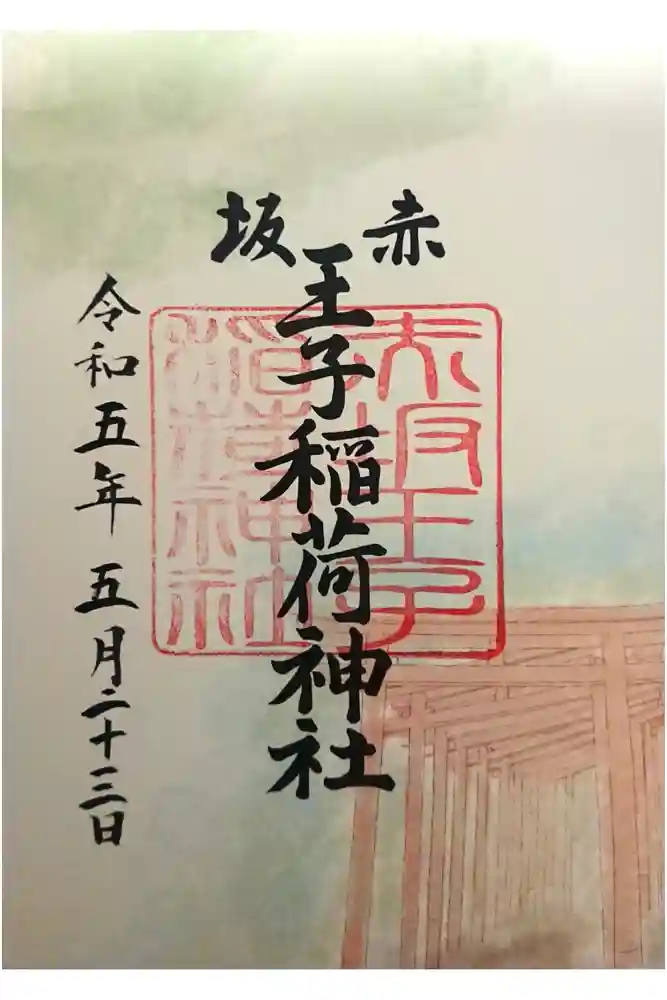 赤坂
王子稲荷神社
赤坂王子
稲荷神社
令和五年 五月二十三日